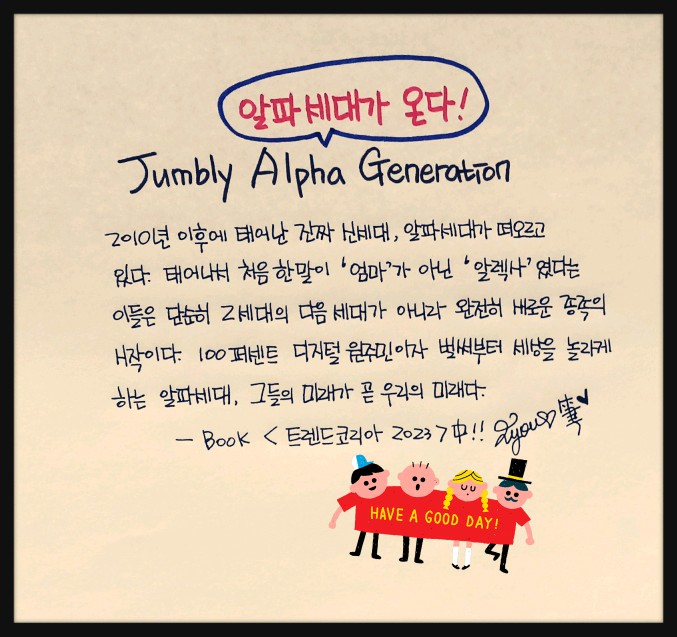 알파세대가 온다!
Jumbly Alpha Generation
2010년 이후에 태어난 진짜 신세대, 알파세대가 떠오르고
있다. 태어나서 처음 한말이 '엄마'가 아닌 '알렉사'였다는
이들은 단순히 Z세대의 다음 세대가 아니라 완전히 새로운 종족의
시작이다. 100퍼센트 디지털 원주민이자 벌써부터 세상을 놀라게
하는 알파세대, 그들의 미래가 곧 우리의 미래다.
- Book < 트렌드코리아 2023 > 中!!
HAVE A GOOD DAY!